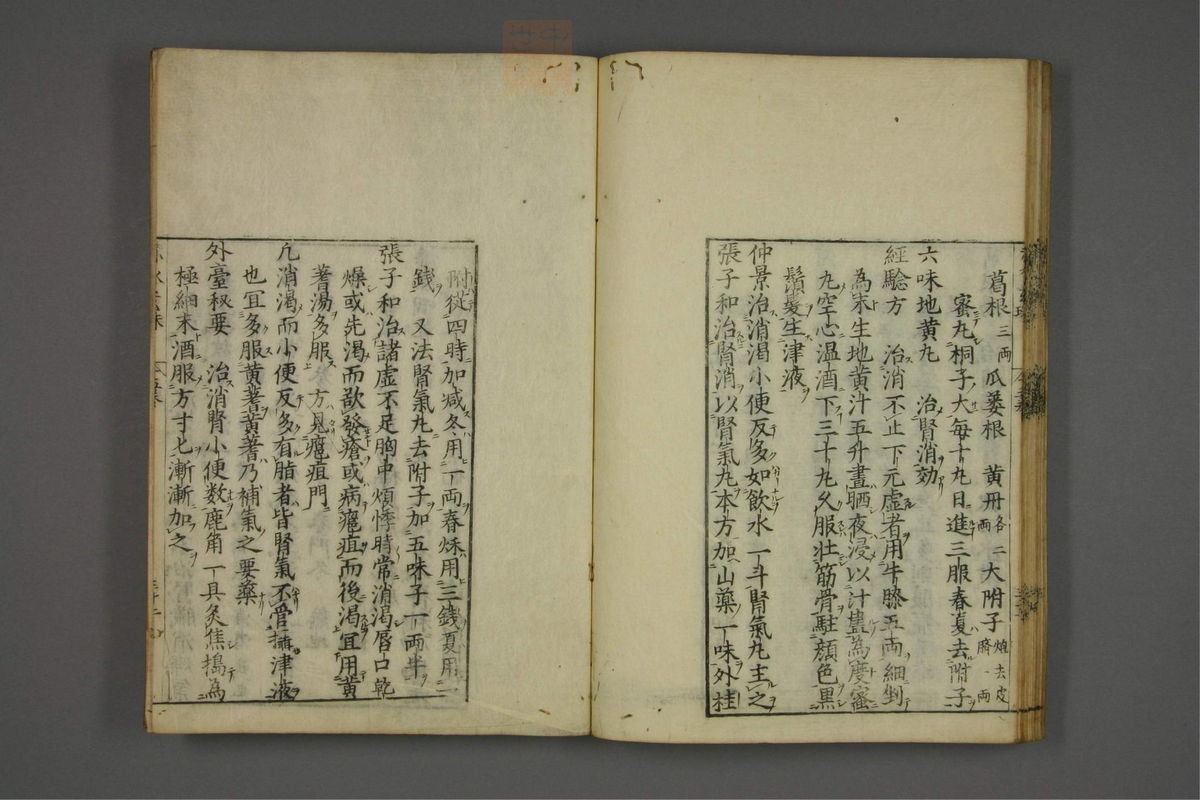 葛根三両 瓜蔞根 黄丹各二両 大附子炮去皮臍一両
蜜丸桐子大毎十丸日進三服春夏去附子
六味地黄丸 治腎消効
經驗方 治消不止下元虚者用牛膝五両細剉
為末生地黄汁五升晝晒夜浸以汁盡為度蜜
丸空心温酒下三十丸久服壮筋骨駐顔色黒
鬚髪生津液
仲景治消渴小便反多如飲水一斗腎氣丸主之
張子和治腎消以腎氣丸本方加山藥一味外桂
附從四時加减冬用一両春秌用三錢夏用一
錢 又法腎氣丸去附子加五味子一両半
張子和治諸虚不足胸中煩悸時常消渴唇口乾
燥或先渴而欲發瘡或病癰疽而後渴宜用黄
蓍湯多服 方見癰疽門
凢消渴而小便反多有脂者皆腎氣不管攝津液
也宜多服黄蓍黄蓍乃補氣之要藥
外臺秘要 治消腎小便数鹿角一具炙焦搗為
極細末酒服方寸匕漸漸加之